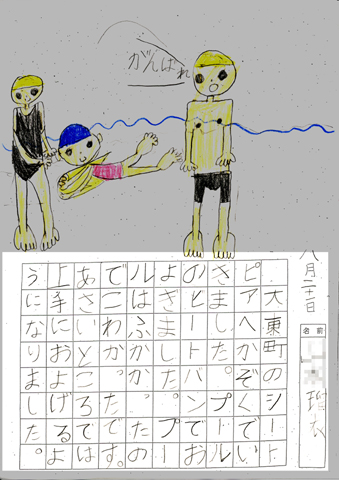 がんばれ
八月二十一日
名前
大東町のシート
ピアへかぞくでい
きました。プール
のビートバンでお
よぎました。プー
ルはふかかったの
でこわかったです。
あさいところでは
上手におよげるよ
うになりました。